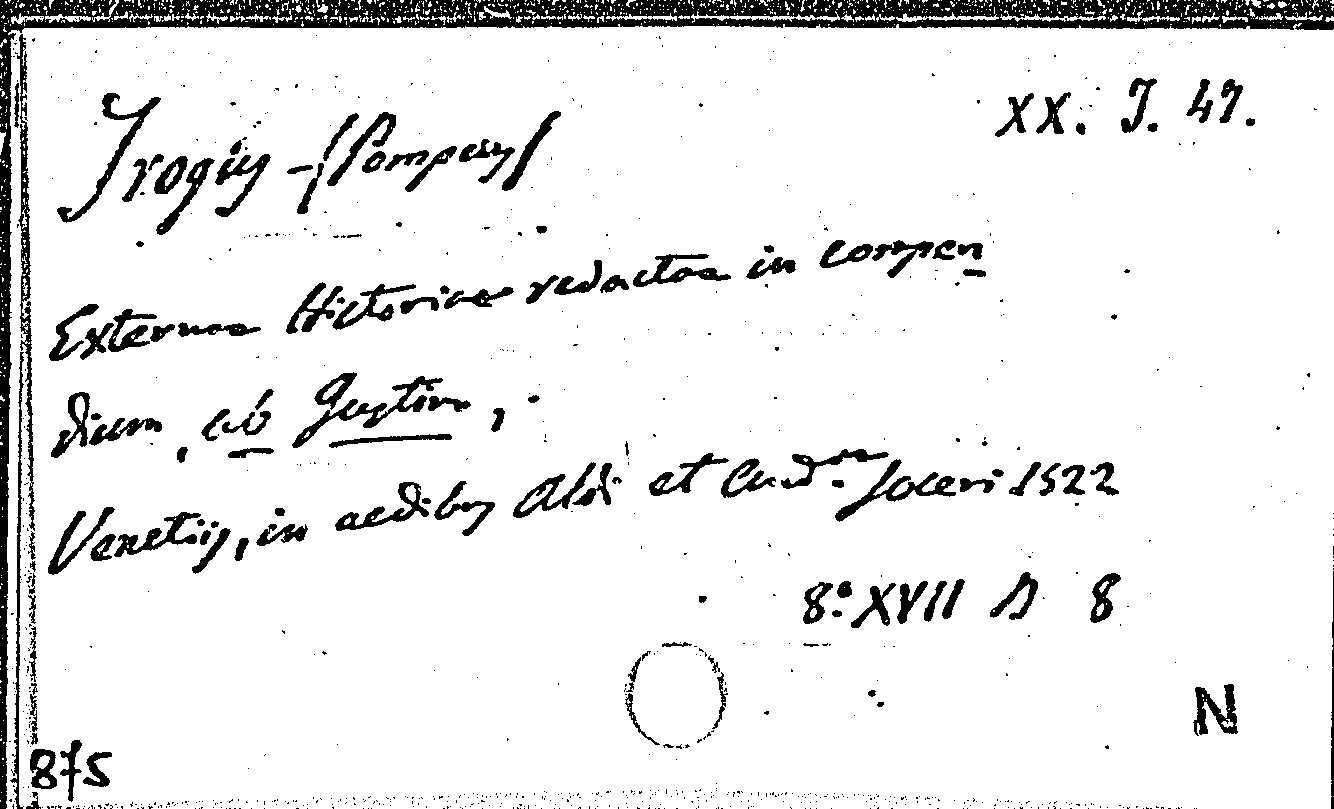 Trogus - (Pompeius)
XX. J. 47.
Externae Historiae redactae in compen
dium, ab Justino,
Venetiis, in aedibus Aldi et And.ae Soceri 1522
8.° XVII D 8
N
875